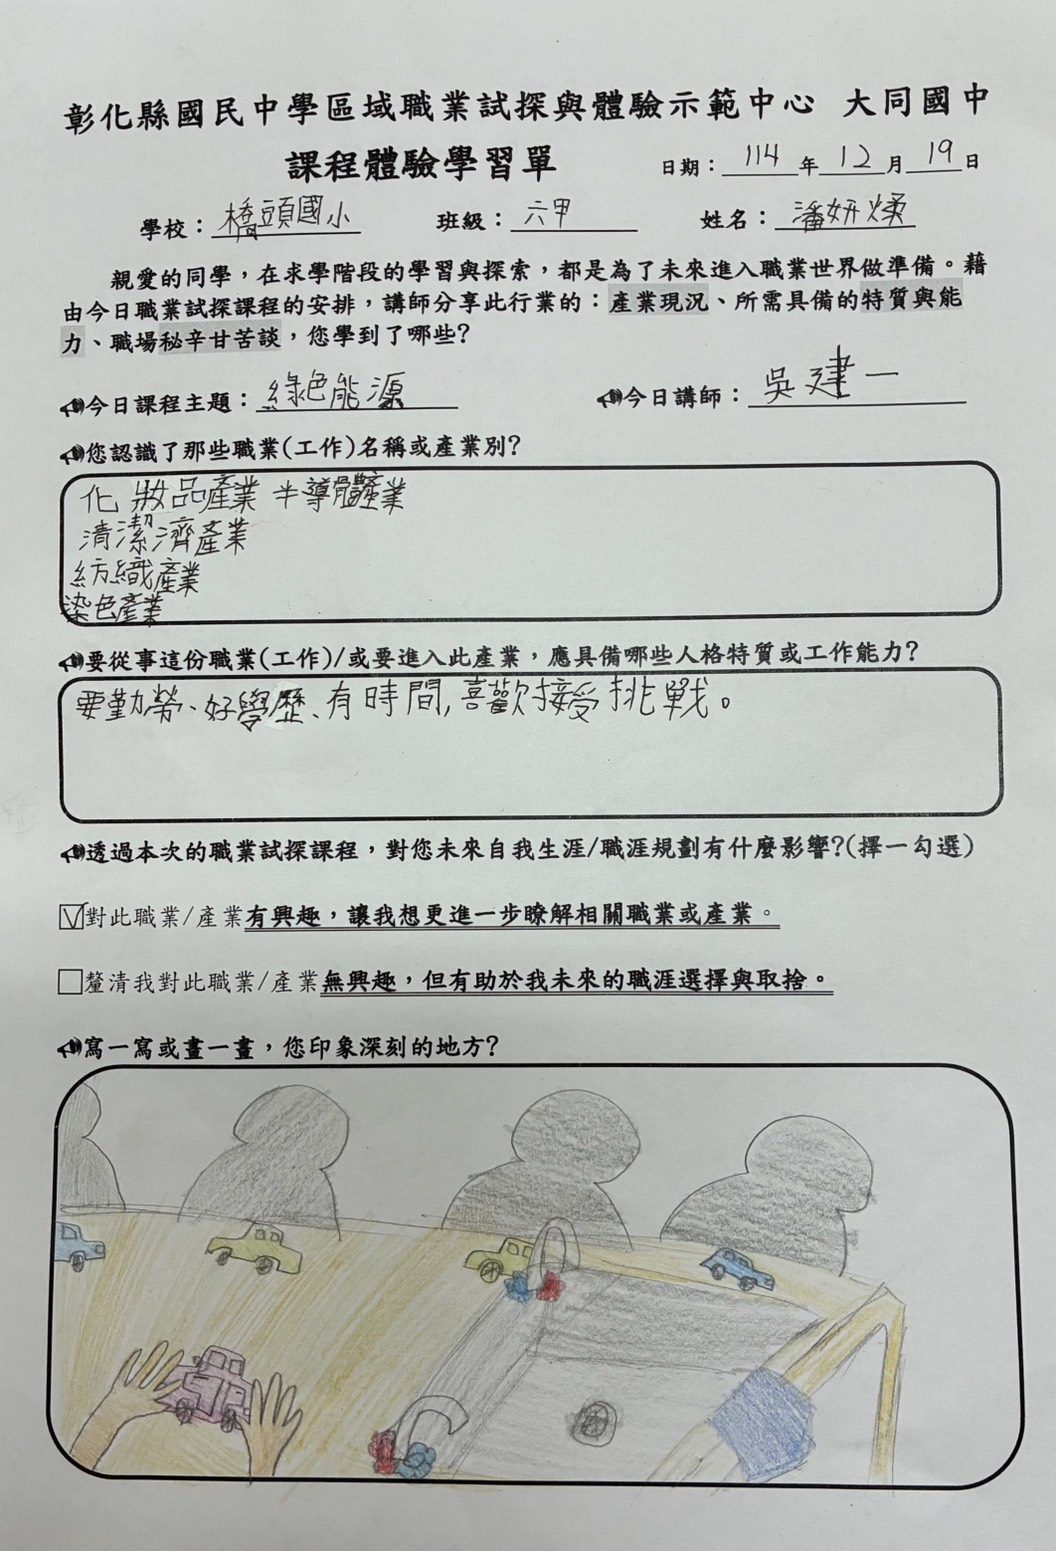 彰化縣國民中學區域職業試探與體驗示範中心 大同國中
課程體驗學習單 日期：114年12月19日
學校：橋頭國小 班級：六甲 姓名：潘妍煣
親愛的同學，在求學階段的學習與探索，都是為了未來進入職業世界做準備。藉
由今日職業試探課程的安排，講師分享此行業的：產業現況、所需具備的特質與能
力、職場秘辛甘苦談，您學到了哪些?
今日課程主題：綠色能源 今日講師：吳建一
您認識了那些職業(工作)名稱或產業別?
化妝品產業 半導體產業
清潔濟產業
紡織產業
染色產業
要從事這份職業(工作)/或要進入此產業，應具備哪些人格特質或工作能力?
要勤勞、好學歷、有時間,喜歡接受挑戰。
透過本次的職業試探課程，對您未來自我生涯/職涯規劃有什麼影響?(擇一勾選)
☑對此職業/產業有興趣，讓我想更進一步瞭解相關職業或產業。
□釐清我對此職業/產業無興趣，但有助於我未來的職涯選擇與取捨。
寫一寫或畫一畫，您印象深刻的地方?